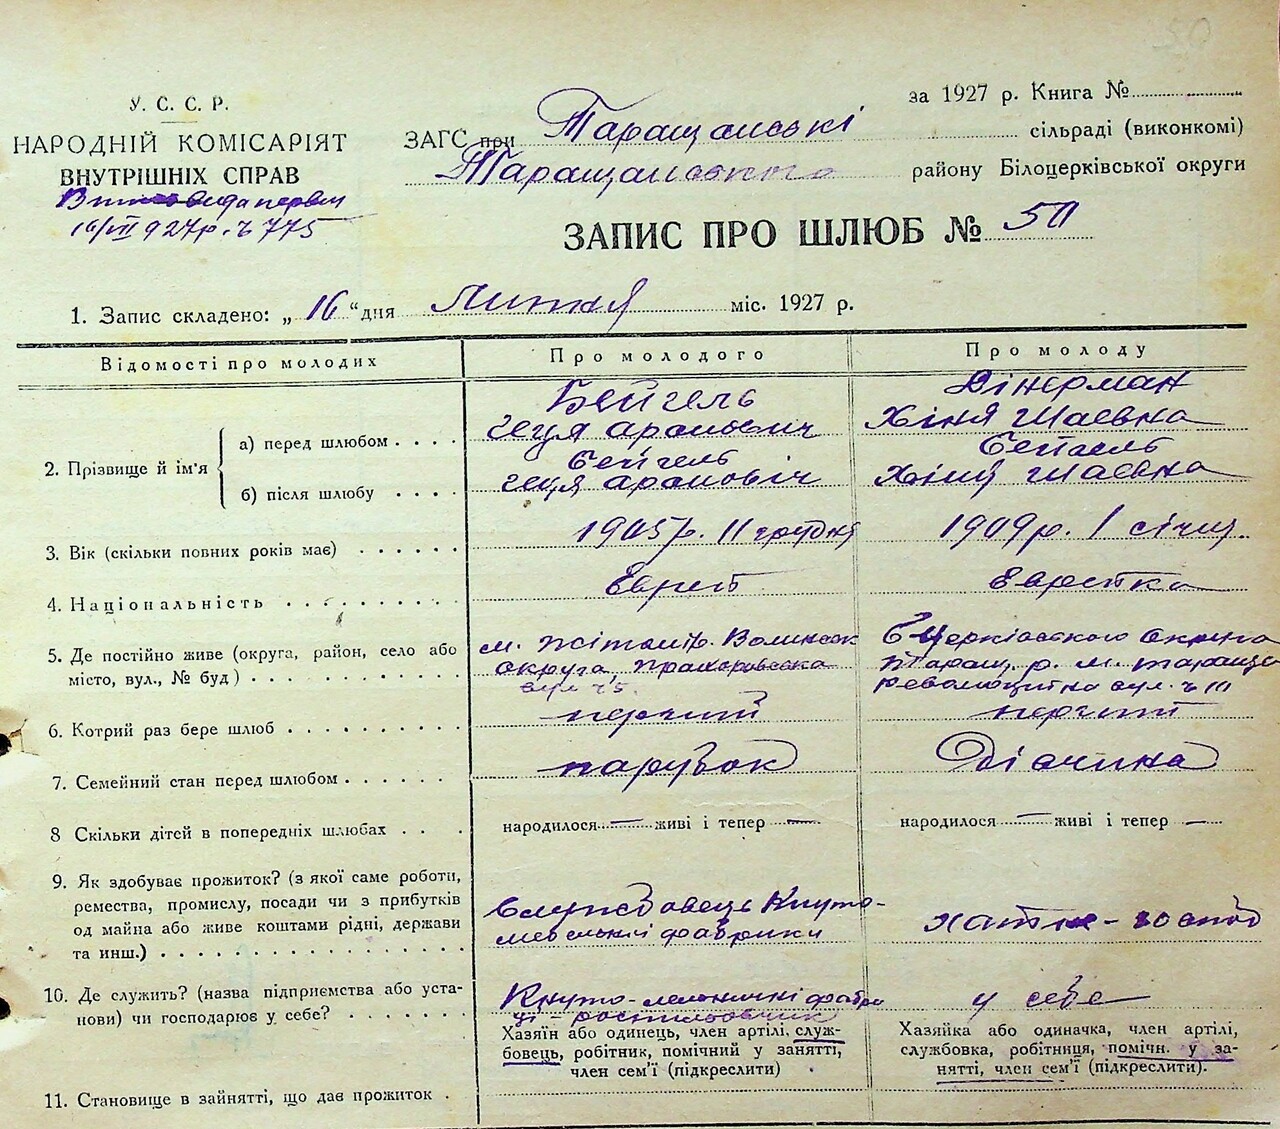 50
У. С. С. Р.
НАРОДНІЙ КОМІСАРІЯТ
ВНУТРІШНІХ СПРАВ
16/VII 927р. ч 775
за 1927 р. Книга №
ЗАГС при Таращанські сільраді (виконкомі)
Таращанського району Білоцерківської округи
ЗАПИС ПРО ШЛЮБ № 50
1. Запис складено: „ 16 “ дня Лютня міс. 1927 р.
Відомості про молодих
Про молодого
Про молоду
2. Прізвище й ім'я
а) перед шлюбом
Бейгель
Арамовіч
Дінерман
Хіня Шаєвна
б) після шлюбу
Бейгель
Арамовіч
Бейгель
Хіня Шаєвна
3. Вік (скільки повних років має)
1905 р. 11 грудня
1909 р. 1 січня
4. Національність
Еврей
Еврейка
5. Де постійно живе (округа, район, село або
місто, вул., № буд)
м. Житомір. Волинськ
округа,
вул ч 5.
Б Церківського округа
Таращ. р. м. Тараща
Революцийна вул. ч 111
6. Котрий раз бере шлюб
перчий
перчий
7. Семейний стан перед шлюбом
парубок
Дівчина
8 Скільки дітей в попередніх шлюбах
народилося — живі і тепер —
народилося — живі і тепер —
9. Як здобуває прожиток? (з якої саме роботи,
ремества, промислу, посади чи з прибутків
од майна або живе коштами рідні, держави
та инш.)
Службовець
фабрики
Хатне - господ
10. Де служить? (назва підприємства або уста-
нови) чи господарює у себе?
у себе
11. Становище в зайнятті, що дає прожиток
Хазяїн або одинець, член артілі, служ-
бовець, робітник, помічний у занятті,
член сем'ї (підкреслити)
Хазяйка або одиначка, член артілі,
службовка, робітниця, помічн. у за-
нятті, член сем'ї (підкреслити).